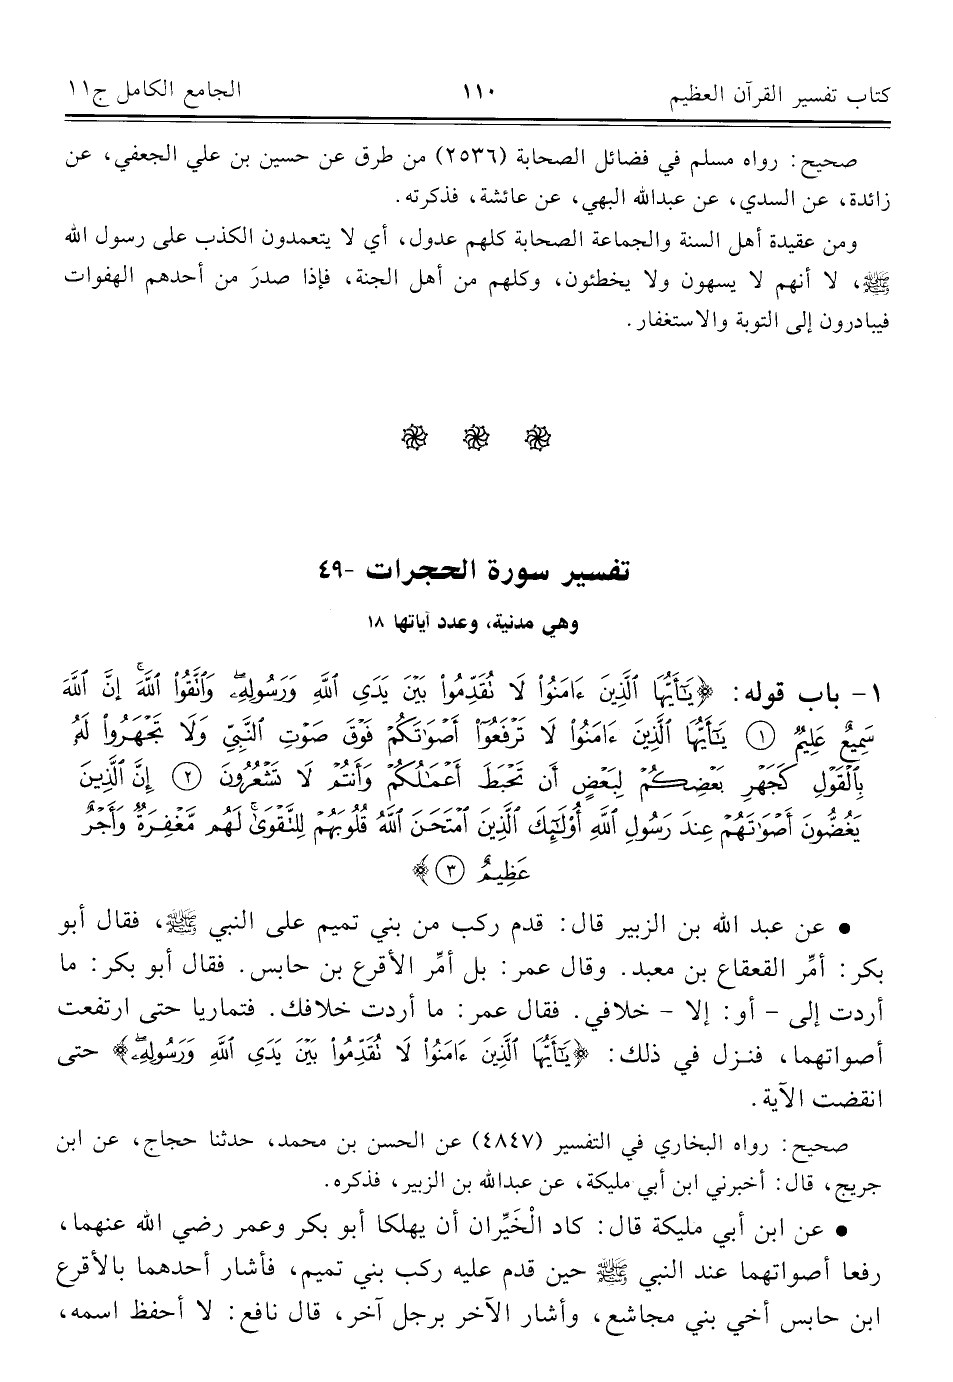 كتاب تفسير القرآن العظيم ١١٠ الجامع الكامل ج١١
صحيح: رواه مسلم في فضائل الصحابة (٢٥٣٦) من طرق عن حسين بن علي الجعفي، عن
زائدة، عن السدي، عن عبدالله البهي، عن عائشة، فذكرته.
ومن عقيدة أهل السنة والجماعة الصحابة كلهم عدول، أي لا يتعمدون الكذب على رسول الله
ﷺ، لا أنهم لا يسهون ولا يخطئون، وكلهم من أهل الجنة، فإذا صدرَ من أحدهم الهفوات
فيبادرون إلى التوبة والاستغفار.
تفسير سورة الحجرات -٤٩
وهي مدنية، وعدد آياتها ١٨
١- باب قوله: ﴿يَٰٓأَيُّهَا ٱلَّذِينَ ءَامَنُوا۟ لَا تُقَدِّمُوا۟ بَيْنَ يَدَىِ ٱللَّهِ وَرَسُولِهِۦ ۖ وَٱتَّقُوا۟ ٱللَّهَ ۚ إِنَّ ٱللَّهَ
سَمِيعٌ عَلِيمٌ ١ يَٰٓأَيُّهَا ٱلَّذِينَ ءَامَنُوا۟ لَا تَرْفَعُوٓا۟ أَصْوَٰتَكُمْ فَوْقَ صَوْتِ ٱلنَّبِىِّ وَلَا تَجْهَرُوا۟ لَهُۥ
بِٱلْقَوْلِ كَجَهْرِ بَعْضِكُمْ لِبَعْضٍ أَن تَحْبَطَ أَعْمَٰلُكُمْ وَأَنتُمْ لَا تَشْعُرُونَ ٢ إِنَّ ٱلَّذِينَ
يَغُضُّونَ أَصْوَٰتَهُمْ عِندَ رَسُولِ ٱللَّهِ أُو۟لَٰٓئِكَ ٱلَّذِينَ ٱمْتَحَنَ ٱللَّهُ قُلُوبَهُمْ لِلتَّقْوَىٰ ۚ لَهُم مَّغْفِرَةٌ وَأَجْرٌ
عَظِيمٌ ٣﴾
• عن عبد الله بن الزبير قال: قدم ركب من بني تميم على النبي ﷺ، فقال أبو
بكر: أمِّر القعقاع بن معبد. وقال عمر: بل أمِّر الأقرع بن حابس. فقال أبو بكر: ما
أردت إلى - أو: إلا - خلافي. فقال عمر: ما أردت خلافك. فتماريا حتى ارتفعت
أصواتهما، فنزل في ذلك: ﴿يَٰٓأَيُّهَا ٱلَّذِينَ ءَامَنُوا۟ لَا تُقَدِّمُوا۟ بَيْنَ يَدَىِ ٱللَّهِ وَرَسُولِهِۦ ۖ﴾ حتى
انقضت الآية.
صحيح: رواه البخاري في التفسير (٤٨٤٧) عن الحسن بن محمد، حدثنا حجاج، عن ابن
جريج، قال: أخبرني ابن أبي مليكة، عن عبدالله بن الزبير، فذكره.
• عن ابن أبي مليكة قال: كاد الْخَيِّران أن يهلكا أبو بكر وعمر رضي الله عنهما،
رفعا أصواتهما عند النبي ﷺ حين قدم عليه ركب بني تميم، فأشار أحدهما بالأقرع
ابن حابس أخي بني مجاشع، وأشار الآخر برجل آخر، قال نافع: لا أحفظ اسمه،